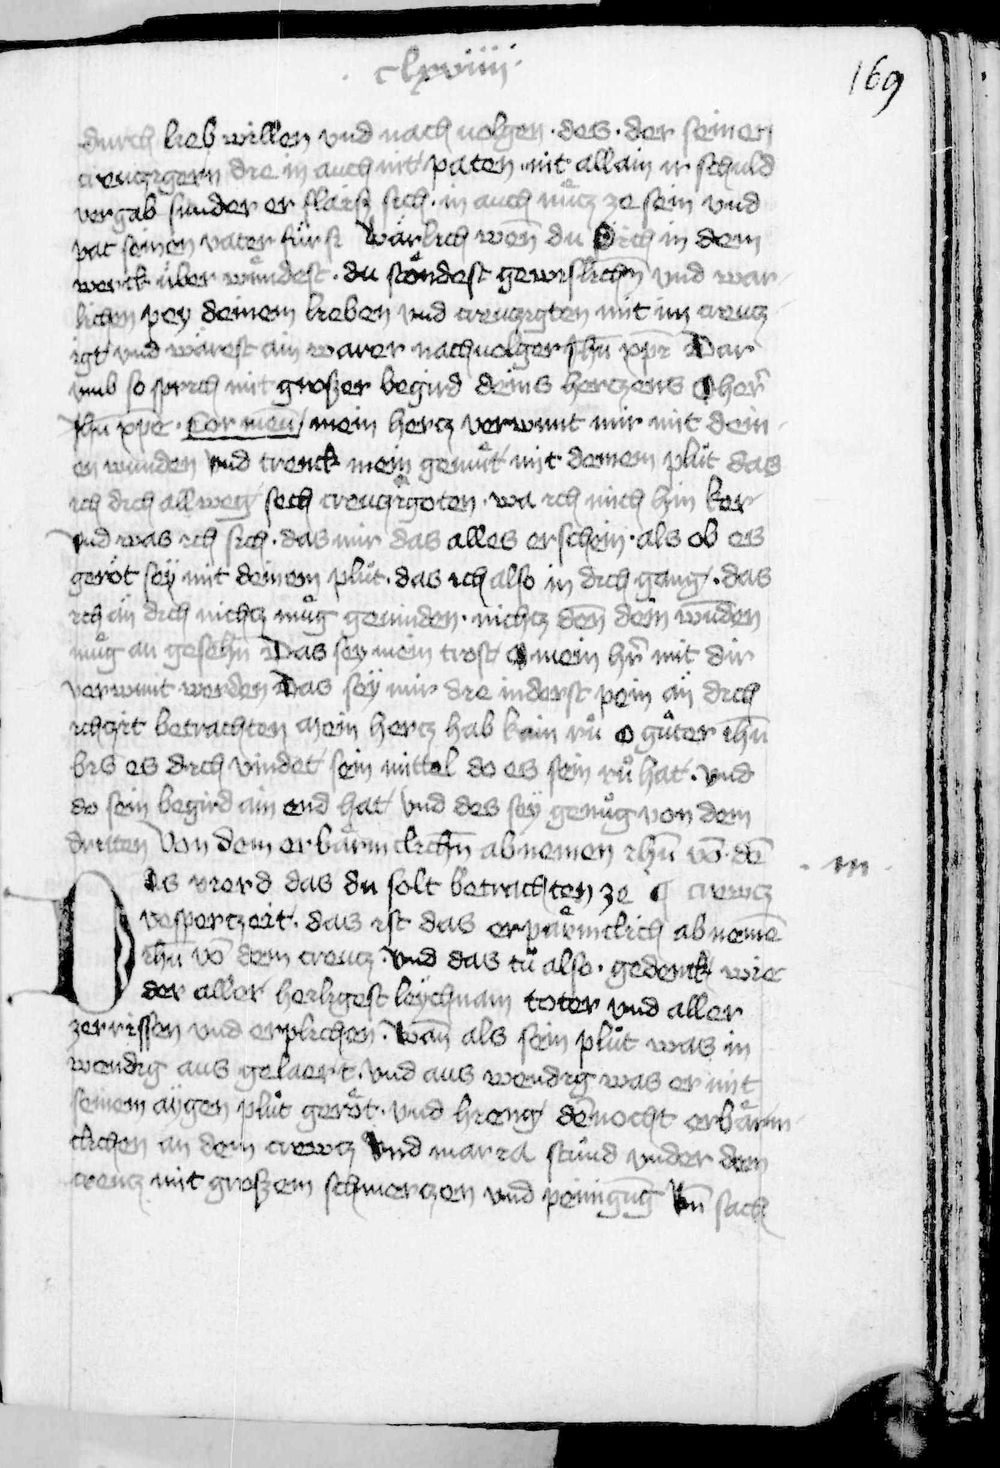 clxviiii
169
durch lieb willen vnd nach uolgen · des · der seinen
creuczigern die in auch nit paten · nit allain ir schuld
vergab sunder er flaiss sich · in auch nücz ze sein vnd
pat seinen vater für si Wärlich wen̄ du Dich in dem
werck über wündest · du stöndest gewislichn̄ vnd war
lichen pey deinem lieben vnd creuczigten mit im crewcz
igt vnd wärest ain warer nachuolger ihū xp̄i Dar
umb so sprich mit grosser begird deins herczens O her̄
ihū xp̄e · Cor meū / mein hercz verwunt mir mit dein
en wunden vnd trenck mein gemüt mit deinem plůt das
ich dich allweg sech creuczigoten · wa ich mich hin ker
vnd was ich sich · das mir das alles erschein · als ob es
geröt seÿ mit deinem plůt · das ich also in dich gang · das
ich än dich nichcz müg geuinden · nichcz den̄ dein wūden
müg an gesehn̄ Das sey mein trost O mein hr̄ mit dir
verwunt werden Das seÿ mir die inderst pein än dich
ichczit betrachten Mein hercz hab kain rů O gůter ihū
bis es dich vindet sein mittel do es sein rů hat · vnd
do sein begird ain end hat vnd des seÿ genůg von dem
dritten Von dem erbärmclichn̄ abnemen ihū vō · dē
· m ·
Das vierd das du solt betrachten ze ¶ crewcz
vesperczeit · das ist das erpärmclich abnemē
ihū vō dem creucz · vnd das tů also · gedenck wie
der aller heiligest leÿchnam toter vnd aller
zerrissen vnd erplichen · Wan̄ als sein plůt was in
wendig aus gelaert · vnd aus wendig was er mit
seinem aÿgen plůt geröt · vnd hieng dēnocht erbärm
clichen an dem crewcz Vnd maria stůnd vnder dem
creucz mit grossem schmerczen vnd peinigūg Vn̄ sach